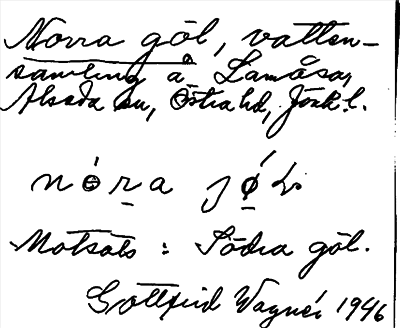 Norra göl, vatten-
samling å Lamåsa,
Alseda sn, Östra hd, Jönk.l.
Motsats: Södra göl.
Gottfrid Wagnér 1946